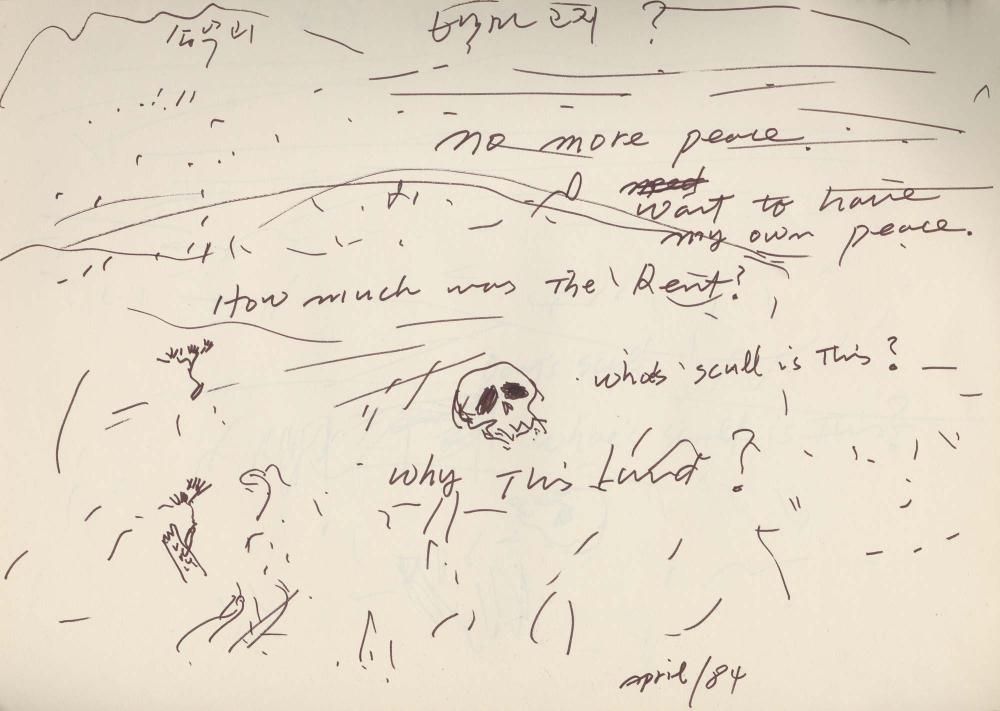 ?
no more peace.
want to have
my own peace.
How much was The Rent?
whos' scull is This?
why This Land ?
april/84